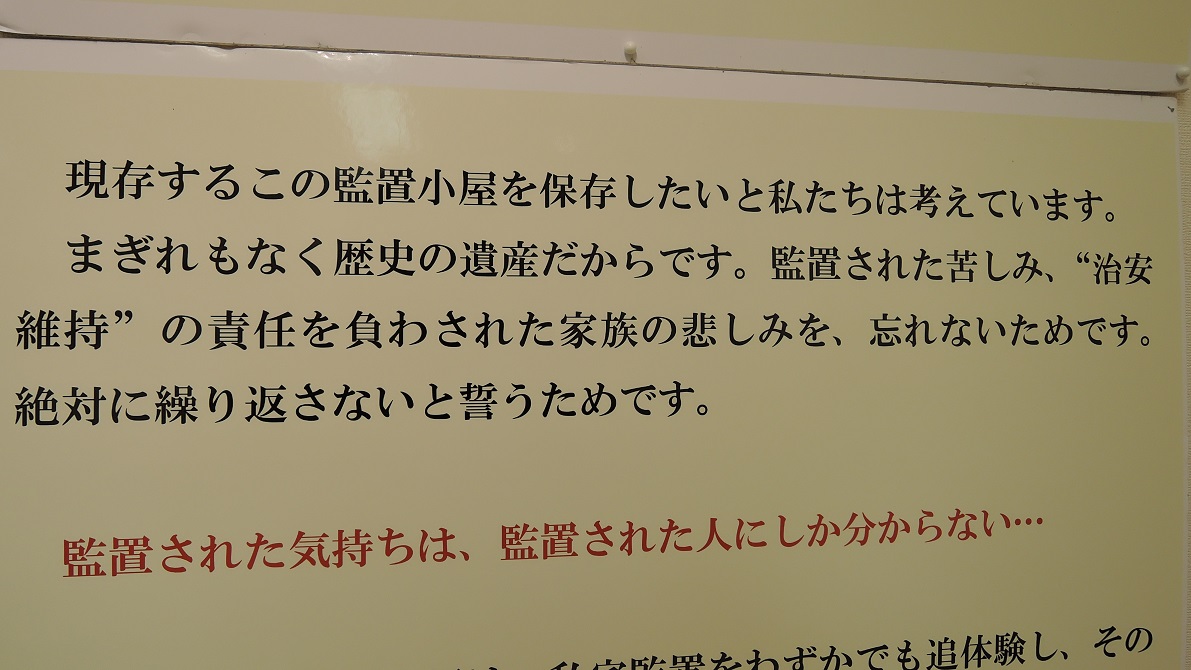 現存するこの監置小屋を保存したいと私たちは考えています。
まぎれもなく歴史の遺産だからです。監置された苦しみ、“治安
維持”の責任を負わされた家族の悲しみを、忘れないためです。
絶対に繰り返さないと誓うためです。
監置された気持ちは、監置された人にしか分からない…
私宅監置をわずかでも追体験し、その